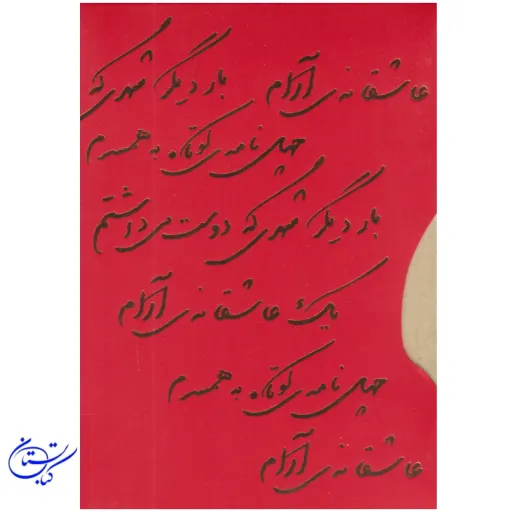 عاشقانه‌ی آرام بار دیگر شهری که
چهل نامه‌ی کوتاه به همسرم
بار دیگر شهری که دوست می‌داشتم
یک عاشقانه‌ی آرام
چهل نامه‌ی کوتاه به همسرم
عاشقانه‌ی آرام
کتابستان